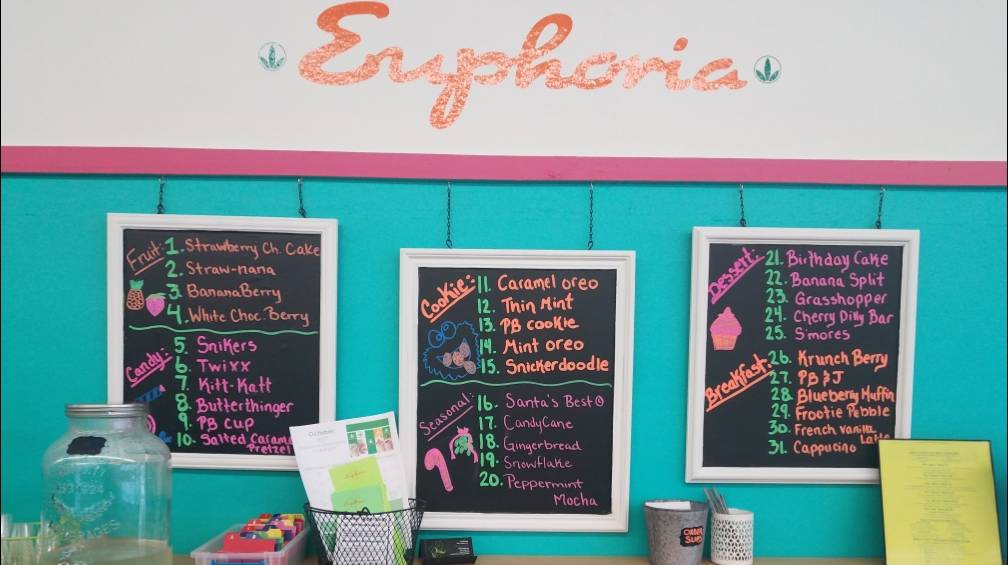 Euphoria
Fruit:
1. Strawberry Ch. Cake
2. Straw-nana
3. BananaBerry
4. White Choc. Berry
Candy:
5. Snikers
6. Twixx
7. Kitt-Katt
8. Butterthinger
9. PB Cup
10. Salted Caramel
Pretzel
Cookie:
11. Caramel oreo
12. Thin Mint
13. PB cookie
14. Mint oreo
15. Snickerdoodle
Seasonal:
16. Santa's Best
17. CandyCane
18. Gingerbread
19. Snowflake
20. Peppermint
Mocha
Dessert:
21. Birthday Cake
22. Banana Split
23. Grasshopper
24. Cherry Dilly Bar
25. S'mores
Breakfast:
26. Krunch Berry
27. PB & J
28. Blueberry Muffin
29. Frootie Pebble
30. French Vanilla
Latte
31. Cappucino